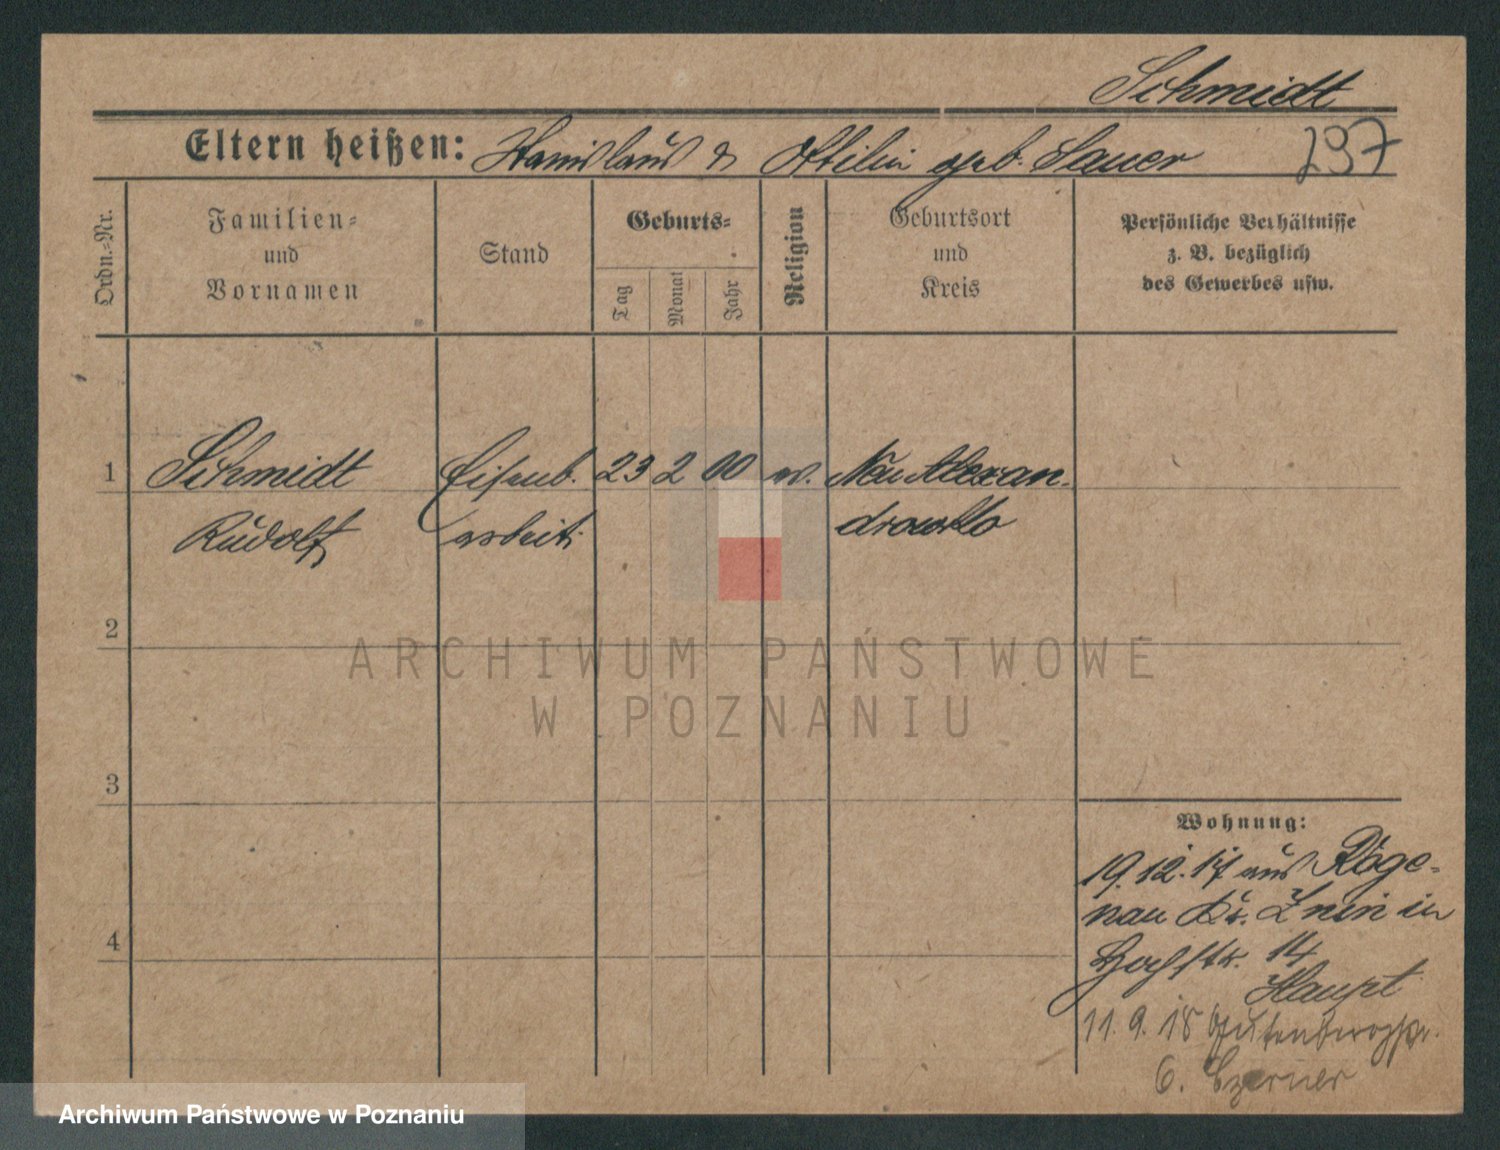 Schmidt
Eltern heißen: Stanislaus & Ottilie geb. Sauer 297
Ordn.-Nr.
Familien-
und
Vornamen
Stand
Geburts-
Tag
Monat
Jahr
Religion
Geburtsort
und
Kreis
Persönliche Verhältnisse
z. B. bezüglich
des Gewerbes usw.
1 Schmidt Eisenb. 23 2 00 Neu Alexan-
Rudolf arbeit. drowko
2
3
4
ARCHIWUM PAŃSTWOWE
W POZNANIU
Wohnung:
19.12.17 aus Roge-
nau Kr. Znin in
Hochstr. 14
Haupt
11.9.18 Gutenbergstr.
6. Czerner
Archiwum Państwowe w Poznaniu